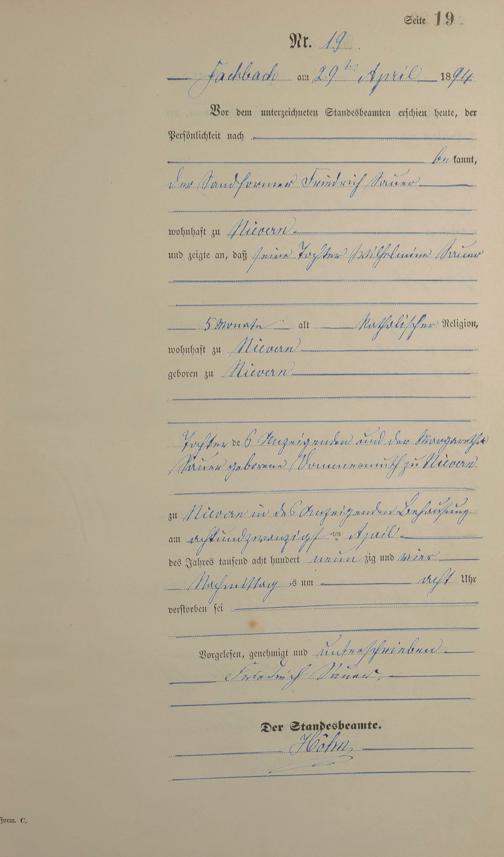 Seite 19
Nr. 19.
Fachbach am 29ten April 1894
Vor dem unterzeichneten Standesbeamten erschien heute, der
Persönlichkeit nach
be kannt,
der Sandformer Friedrich Sauer
wohnhaft zu Nievern
und zeigte an, daß seine Tochter Wilhelmine Sauer
5 Monate alt katholischer Religion,
wohnhaft zu Nievern
geboren zu Nievern
Tochter des Anzeigenden und der Margaretha
Sauer geborene zu Nievern
zu Nievern in des Anzeigenden Behausung
am achtundzwanzigsten April
des Jahres tausend acht hundert neunzig und vier
Nachmittags um acht Uhr
verstorben sei
Vorgelesen, genehmigt und unterschrieben
Friedrich Sauer.
Der Standesbeamte.
Höhn
Form. C.